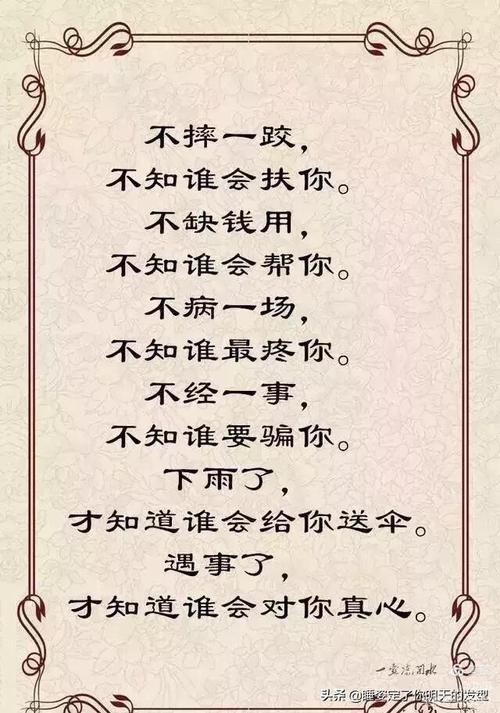 不摔一跤，
不知谁会扶你。
不缺钱用，
不知谁会帮你。
不病一场，
不知谁最疼你。
不经一事，
不知谁要骗你。
下雨了，
才知道谁会给你送伞。
遇事了，
才知道谁会对你真心。
一壶凉开水
头条 @睡姿定了你明天的发型